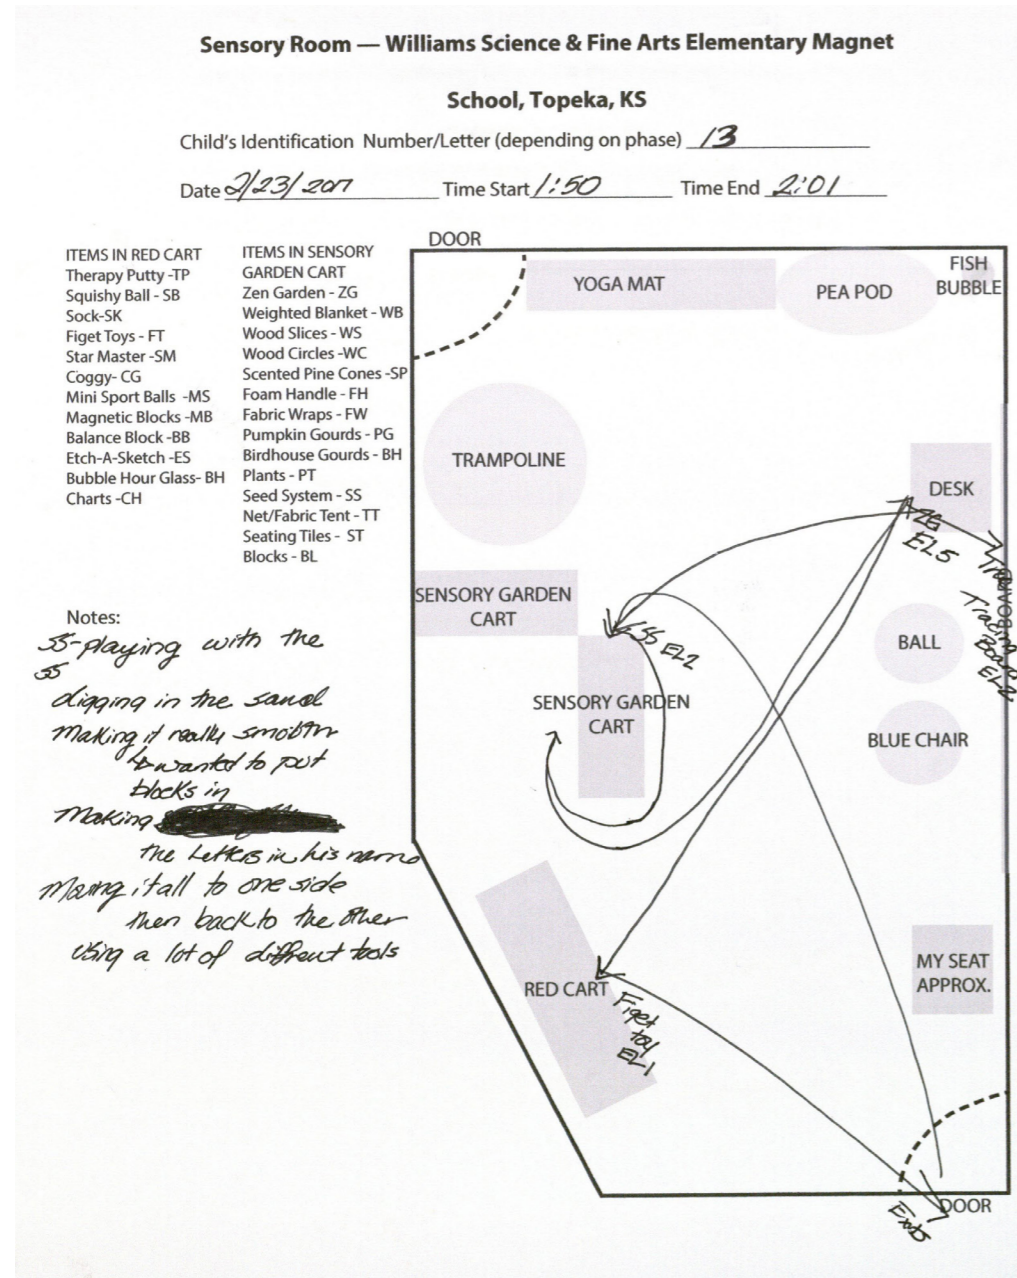 Sensory Room — Williams Science & Fine Arts Elementary Magnet
School, Topeka, KS
Child's Identification Number/Letter (depending on phase) 13
Date 2/23/2017 Time Start 1:50 Time End 2:01
ITEMS IN RED CART
Therapy Putty -TP
Squishy Ball - SB
Sock-SK
Figet Toys - FT
Star Master -SM
Coggy- CG
Mini Sport Balls -MS
Magnetic Blocks -MB
Balance Block -BB
Etch-A-Sketch -ES
Bubble Hour Glass- BH
Charts -CH
ITEMS IN SENSORY
GARDEN CART
Zen Garden - ZG
Weighted Blanket - WB
Wood Slices - WS
Wood Circles -WC
Scented Pine Cones -SP
Foam Handle - FH
Fabric Wraps - FW
Pumpkin Gourds - PG
Birdhouse Gourds - BH
Plants - PT
Seed System - SS
Net/Fabric Tent - TT
Seating Tiles - ST
Blocks - BL
Notes:
SS-playing with the
SS
digging in the sand
making it really smooth
wanted to put
blocks in
making
the letters in his name
Moving it all to one side
then back to the other
using a lot of diffrent tools
DOOR
YOGA MAT
PEA POD
FISH
BUBBLE
TRAMPOLINE
DESK
ZG
EL5
SENSORY GARDEN
CART
SS EL2
BOARD
Tracing
Board
EL2
BALL
SENSORY GARDEN
CART
BLUE CHAIR
RED CART
Figet
toy
EL1
MY SEAT
APPROX.
DOOR
Ends